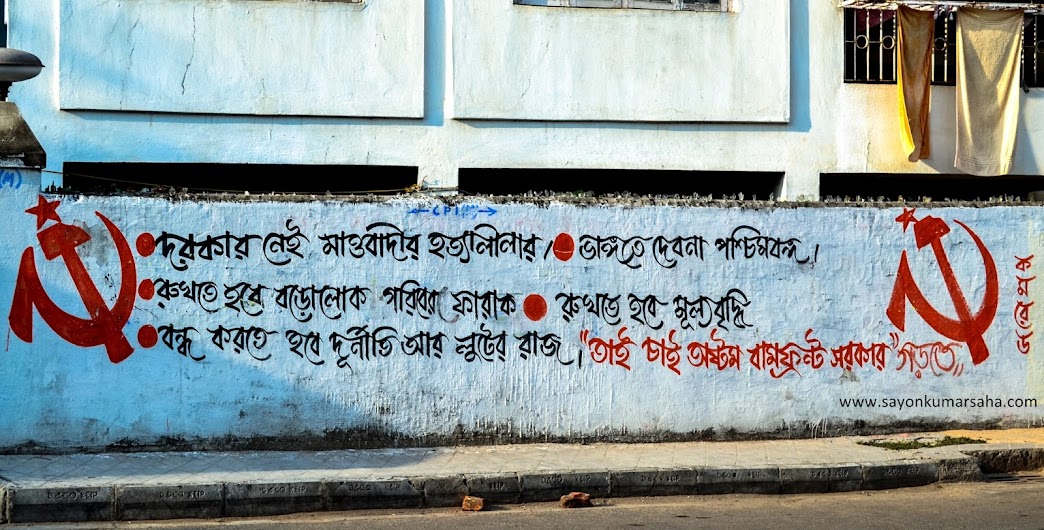 (M)
CPIM
দরকার নেই মাওবাদীর হত্যালীলার / ভাঙ্গতে দেবনা পশ্চিমবঙ্গ।
রুখতে হবে বড়োলোক গরিবের ফারাক রুখতে হবে মূল্যবৃদ্ধি
বন্ধ করতে হবে দূর্নীতি আর লুটের রাজ। "তাই চাই অষ্টম বামফ্রন্ট সরকার" গড়তে,,
www.sayonkumarsaha.com